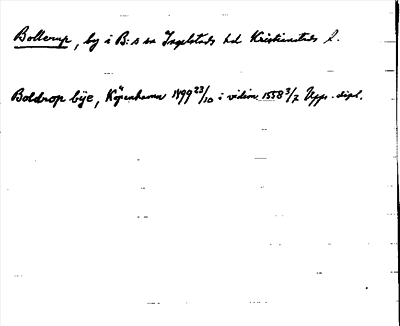 Bollerup, by i B:s sn Ingelstads hd Kristianstads l.
Boldrop bÿe, Köpenhamn 1499 23/10 i vidim. 1558 3/7 Upps. dipl.